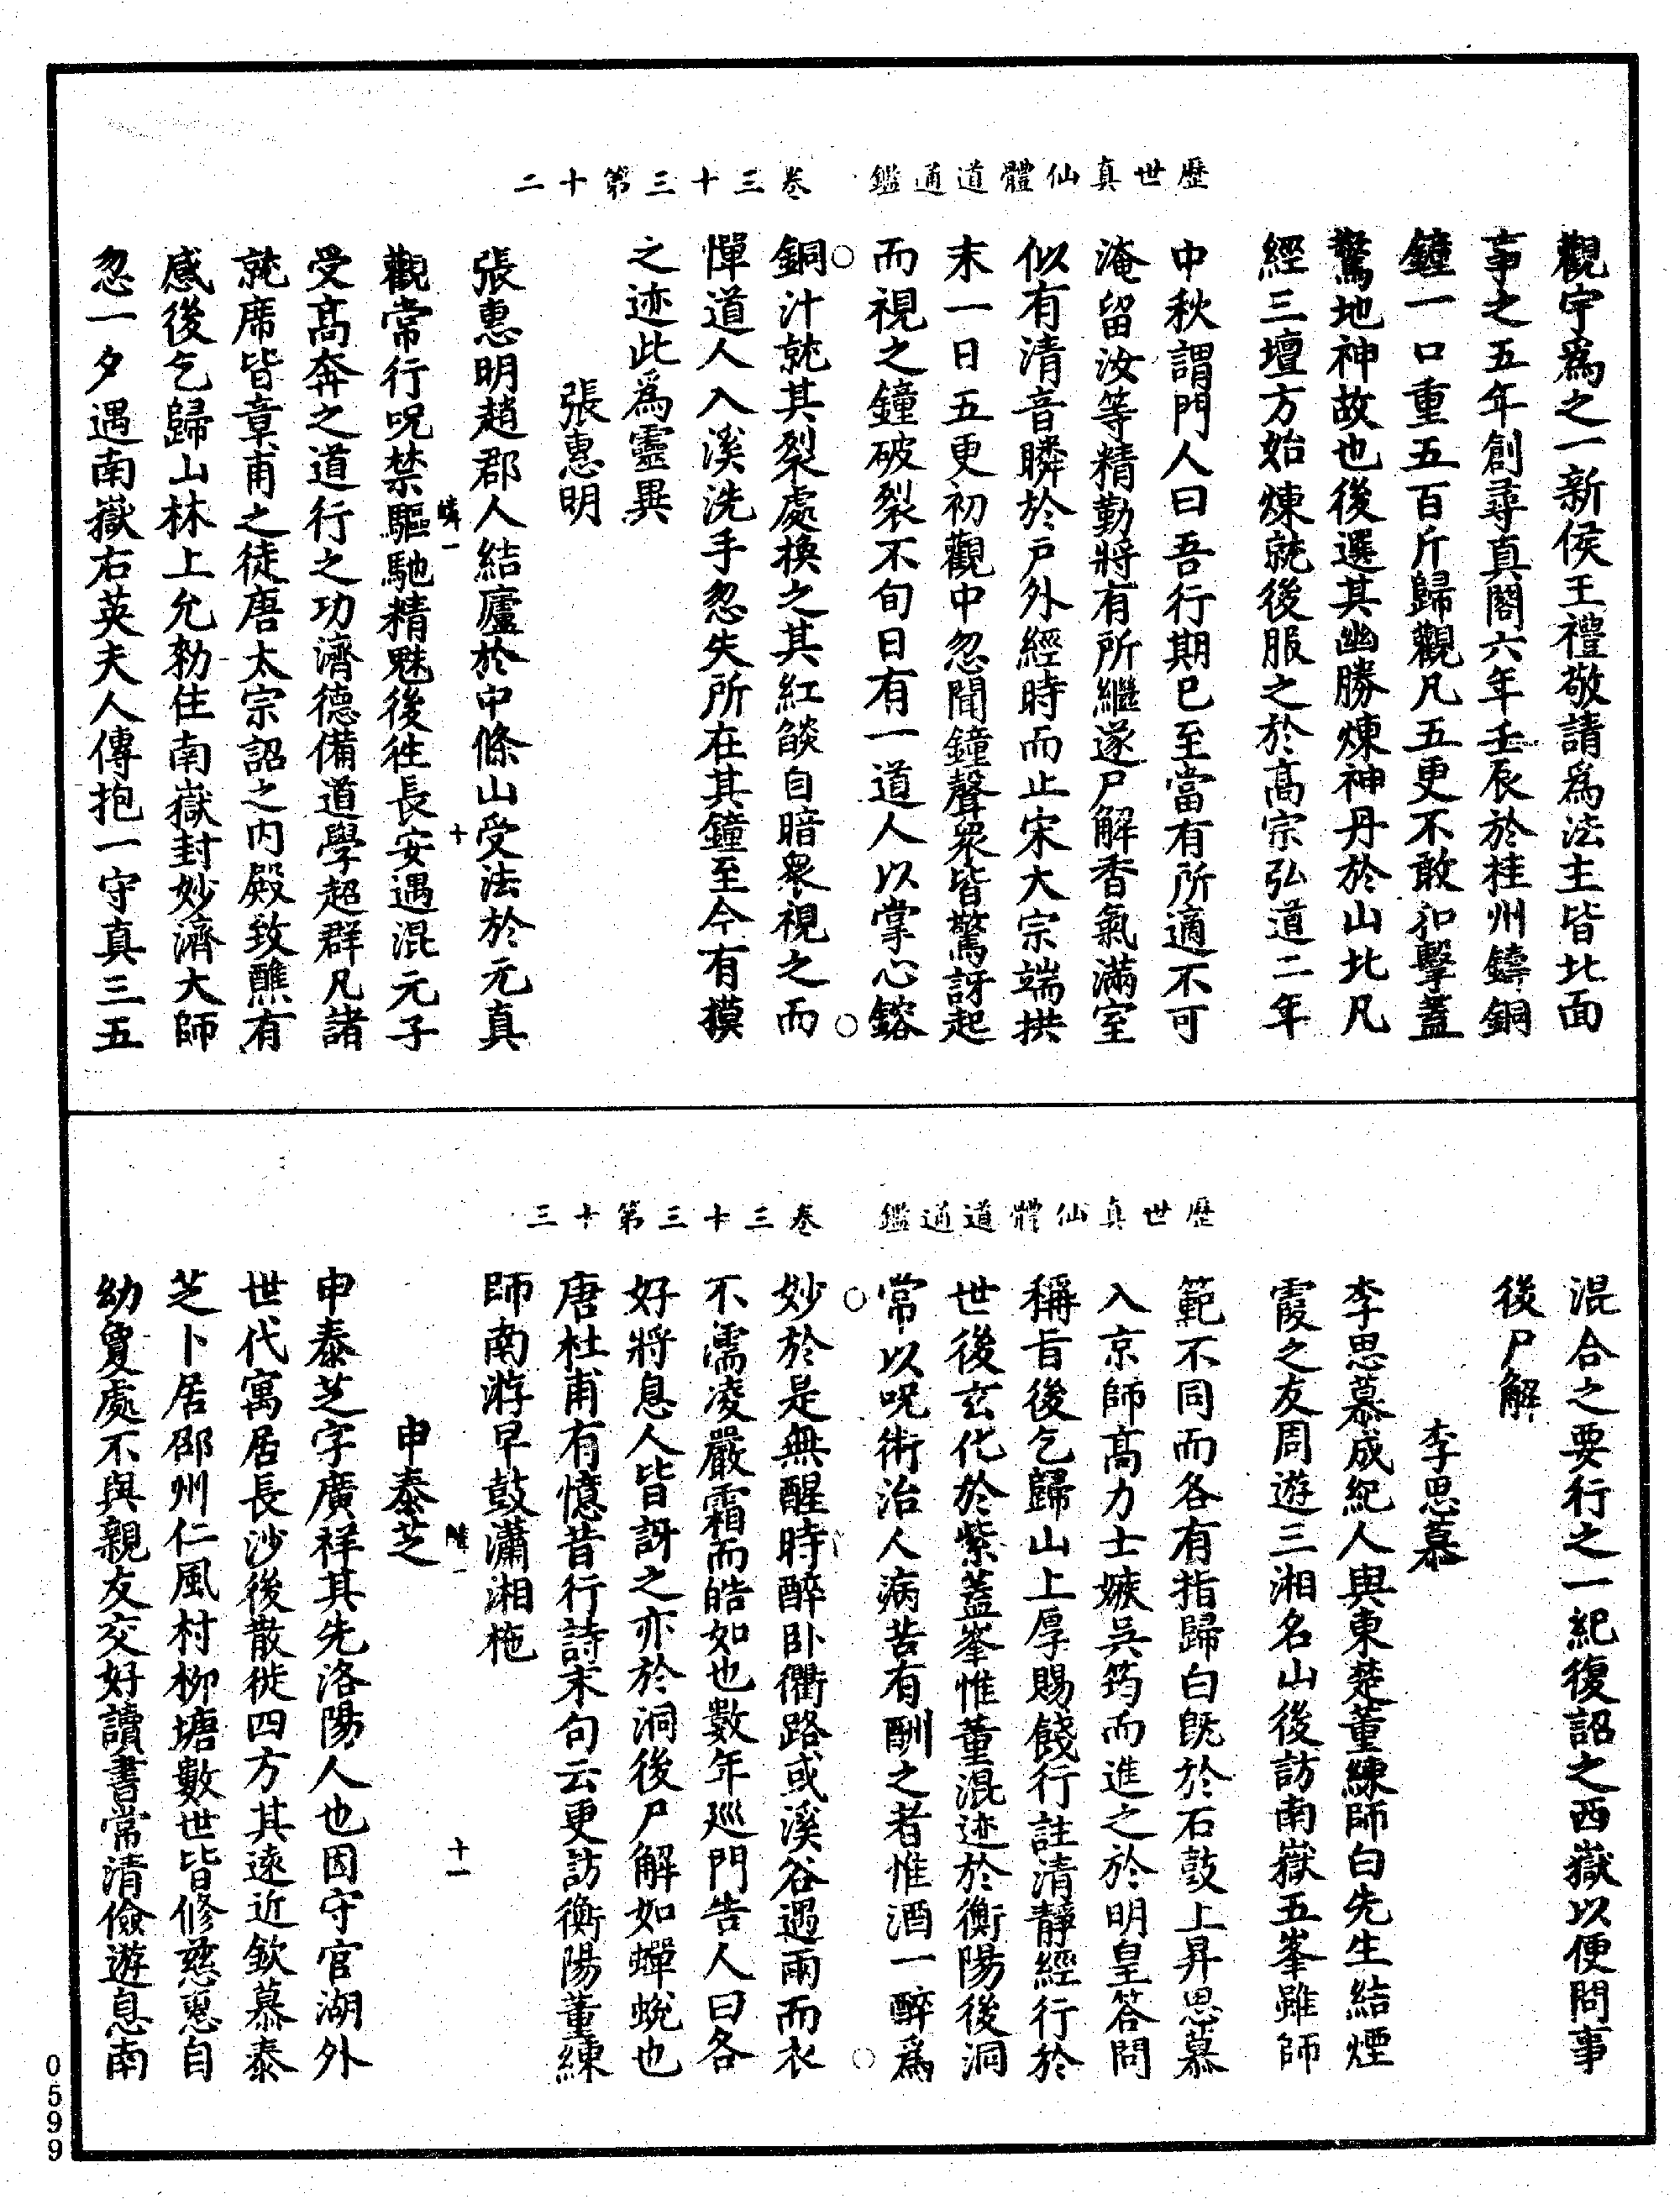 歷世真仙體道通鑑　卷三十三第十二
觀宇爲之一新侯王禮敬請爲法主皆北面
事之五年創尋真閣六年壬辰於桂州鑄銅
鐘一口重五百斤歸觀凡五更不敢扣擊蓋
驚地神故也後選其幽勝煉神丹於山北凡
經三壇方始煉就後服之於高宗弘道二年
中秋謂門人曰吾行期已至當有所適不可
淹留汝等精勤將有所繼遂尸解香氣滿室
似有清音瞵於戶外經時而止宋大宗端拱
末一日五更初觀中忽聞鐘聲衆皆驚訝起
而視之鐘破裂不旬日有一道人以掌心鎔
銅汁就其裂處換之其紅餤自暗衆視之而
憚道人入溪洗手忽失所在其鐘至今有摸
之迹此爲靈異
張惠明
張惠明趙郡人結廬於中條山受法於元真
觀常行呪禁驅馳精魅後徃長安遇混元子
受高奔之道行之功濟德備道學超群凡諸
就席皆章甫之徒唐太宗詔之内殿致醮有
感後乞歸山林上允勑住南嶽封妙濟大師
忽一夕遇南嶽右英夫人傳抱一守真三五
歷世真仙體道通鑑　卷三十三第十三
混合之要行之一紀復詔之西嶽以便問事
後尸解
李思慕
李思慕成紀人與東楚董練師白先生結煙
霞之友周遊三湘名山後訪南嶽五峯雖師
範不同而各有指歸白旣於石鼓上昇思慕
入京師高力士嫉吳筠而進之於明皇答問
稱旨後乞歸山上厚賜餞行註清靜經行於
世後玄化於紫蓋峯惟董混迹於衡陽後洞
常以呪術治人病苦有酬之者惟酒一醉爲
妙於是無醒時醉卧衢路或溪谷遇雨而衣
不濡凌嚴霜而皓如也數年廵門告人曰各
好將息人皆訝之亦於洞後尸解如蟬蛻也
唐杜甫有憶昔行詩末句云更訪衡陽董練
師南游早鼓瀟湘柂
申泰芝
申泰芝字廣祥其先洛陽人也因守官湖外
世代寓居長沙後散徙四方其遠近欽慕泰
芝卜居邵州仁風村柳塘數世皆修慈惠自
幼敻處不與親友交好讀書常清儉遊息南
0599